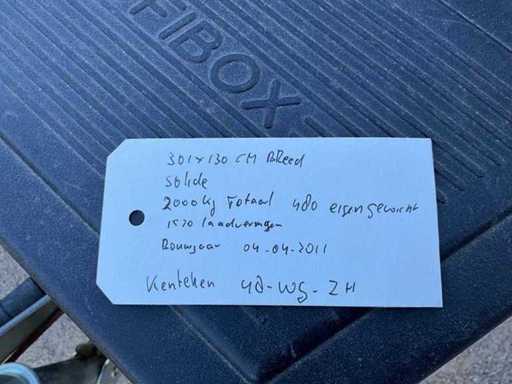 FIBOX
301x130 CM Breed
Solide
2000kg Totaal 480 eigengewicht
1520 laadvermogen
Bouwjaar 04-04-2011
Kenteken 48-WG-ZH